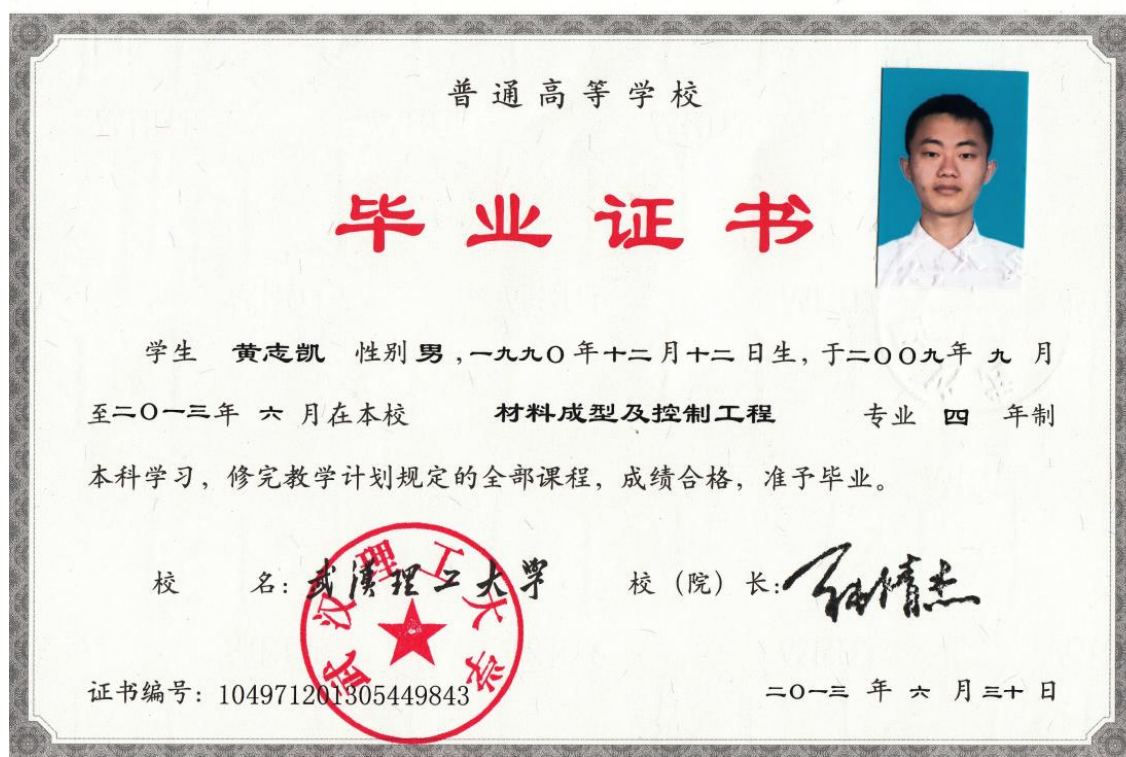 普通高等学校
毕业证书
学生 黄志凯 性别 男 ,一九九〇年十二月十二日生, 于二〇〇九年 九 月
至二〇一三年 六 月在本校 材料成型及控制工程 专业 四 年制
本科学习, 修完教学计划规定的全部课程, 成绩合格, 准予毕业。
校 名: 武漢理工大学 校 (院) 长:
武汉理工大学
证书编号: 104971201305449843 二〇一三 年 六 月三十 日